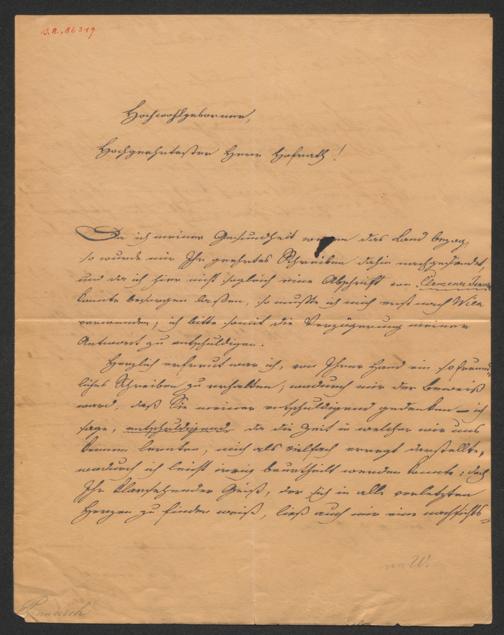 B.R. 86319
Hochwohlgeborner,
Hochgeehrtester Herr Hofrath!
Da ich meiner Gesundheit wegen das Land bezog,
so wurde mir Ihr geehrtes Schreiben dahin nachgesendet,
und da ich hier nicht sogleich eine Abschrift von
konnte besorgen lassen, so mußte ich mich erst nach Wien
verwenden; ich bitte somit die Verzögerung meiner
Antwort zu entschuldigen.
Herzlich erfreut war ich, von Ihrer Hand ein so freund
liches Schreiben zu erhalten, wodurch mir der Beweis
ward, daß Sie meiner entschuldigend gedenken – ich
sage, entschuldigend, da die Zeit in welcher wir uns
kennen lernten, mich als vielfach erregt darstellte,
wodurch ich leicht irrig beurtheilt werden konnte; doch
Ihr klarsehender Geist, der sich in alle verletzten
Herzen zu finden weiß, ließ auch mir eine nachsichts-